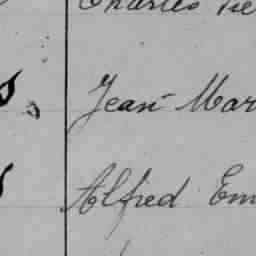 Charles
Jean-Mar
Alfred Em